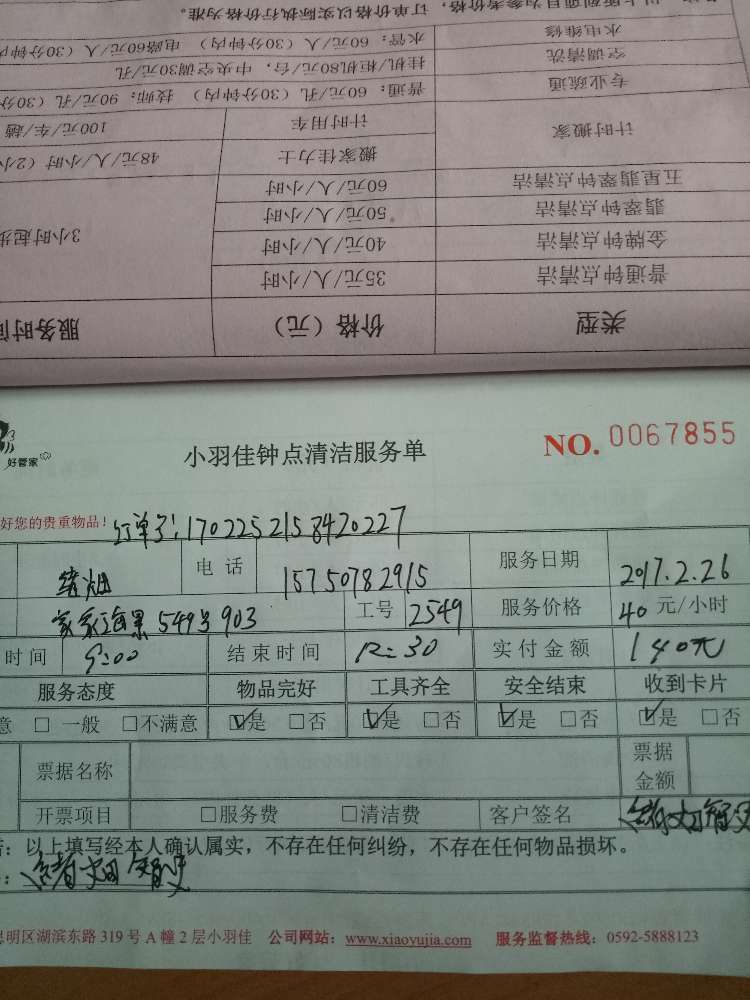 类型 价格（元） 服务时
普通钟点清洁 35元/人/小时
金牌钟点清洁 40元/人/小时
3小时起步
翡翠钟点清洁 50元/人/小时
五星翡翠钟点清洁 60元/人/小时
计时搬家 搬家佳力士 48元/人/小时（2小
计时用车 100元/车/趟
专业疏通 普通：60元/孔（30分钟内） 技师：90元/孔（30分
空调清洗 挂机/柜机80元/台，中央空调30元/孔
水电维修 水管：60元/人（30分钟内） 电路60元/人（30分钟内
以上所列项目为参考价格，订单价格以实际执行价格为准。
好管家
小羽佳钟点清洁服务单 NO. 0067855
好您的贵重物品！ 订单号：1702252158420227
电话 15750782915 服务日期 2017.2.26
549号903 工号 2549 服务价格 40元/小时
时间 9:00 结束时间 12:30 实付金额 140元
服务态度 物品完好 工具齐全 安全结束 收到卡片
意 □一般 □不满意 ☑是 □否 ☑是 □否 ☑是 □否 ☑是 □否
票据名称 票据金额
开票项目 □服务费 □清洁费 客户签名
：以上填写经本人确认属实，不存在任何纠纷，不存在任何物品损坏。
思明区湖滨东路319号A幢2层小羽佳 公司网站：www.xiaoyujia.com 服务监督热线：0592-5888123